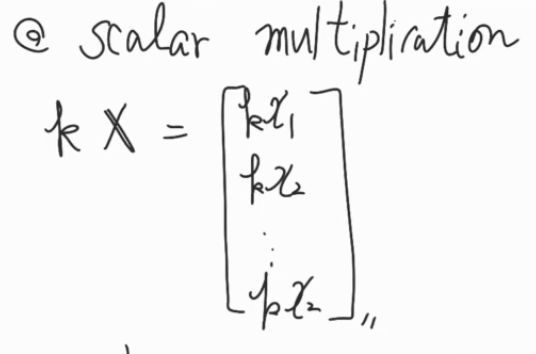 @ scalar multiplication
k X = [kx₁
kx₂
⋮
kx₂]〃